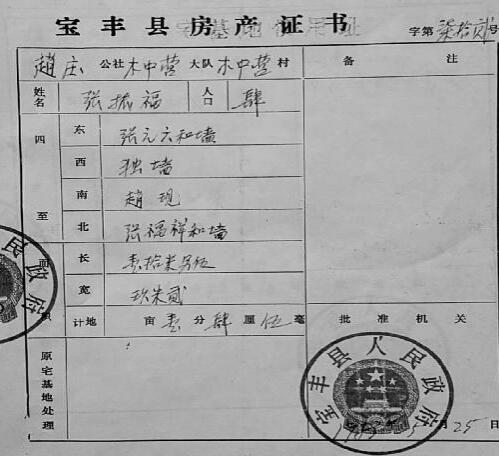 宝丰县房产证书
字第柒拾贰号
赵庄公社木中营大队木中营村
备 注
姓名 张振福 人口 肆
四至
东 张元六和墙
西 独墙
南 赵现
北 张福祥和墙
面积
长 壹拾米另伍
宽 玖米贰
计地 亩壹分肆厘伍毫
批准机关
原宅基地处理
宝丰县人民政府
月25日
民政府